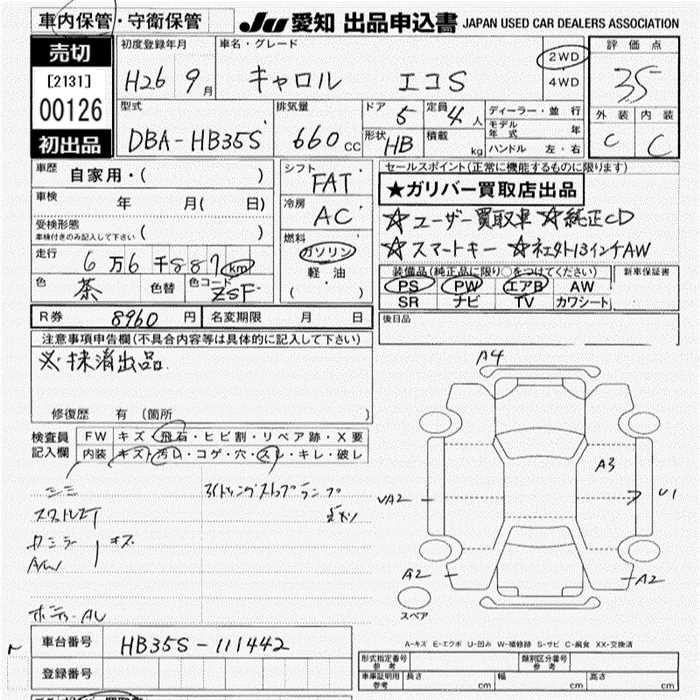 車内保管・守衛保管
JU 愛知 出品申込書 JAPAN USED CAR DEALERS ASSOCIATION
売切
[2131]
00126
初出品
初度登録年月 車名・グレード 評価点
H26 9月 キャロル エコS 2WD 4WD 35
型式 排気量 ドア 5 定員 4人 ディーラー・並行 外装 内装
DBA-HB35S 660cc 形状 HB 積載 kg モデル年式 年 C C
ハンドル 左・右
車歴 自家用・( ) シフト FAT セールスポイント(正常に機能するものに限ります)
★ガリバー買取店出品
車検 年 月( 日) 冷房 AC ☆ユーザー買取車 ☆純正CD
受検形態 車検付きのみ記入して下さい ( ) 燃料 ガソリン ☆スマートキー
走行 6万6千887km 軽油 ( ) 装備品(純正品に限り○をつけてください) 新車保証書
色 茶 色替 色コード ZSF PS PW エアB AW
SR ナビ TV カワシート
R券 8960円 名変期限 月 日 後日品
注意事項申告欄(不具合内容等は具体的に記入して下さい)
出品
修復歴 有 (箇所 )
検査員記入欄 FW キズ・飛石・ヒビ割・リペア跡・X要
内装 キズ・汚レ・コゲ・穴・スレ・キレ・破レ
A4
A3
VA2
U1
A2
A2
スペア
A-キズ E-エクボ U-凹み W-補修跡 S-サビ C-腐食 XX-交換済
車台番号 HB35S-111442
登録番号
形式指定番号 参考 類別区分番号 参考
車庫証明用 参考 長さ cm 幅 cm 高さ cm